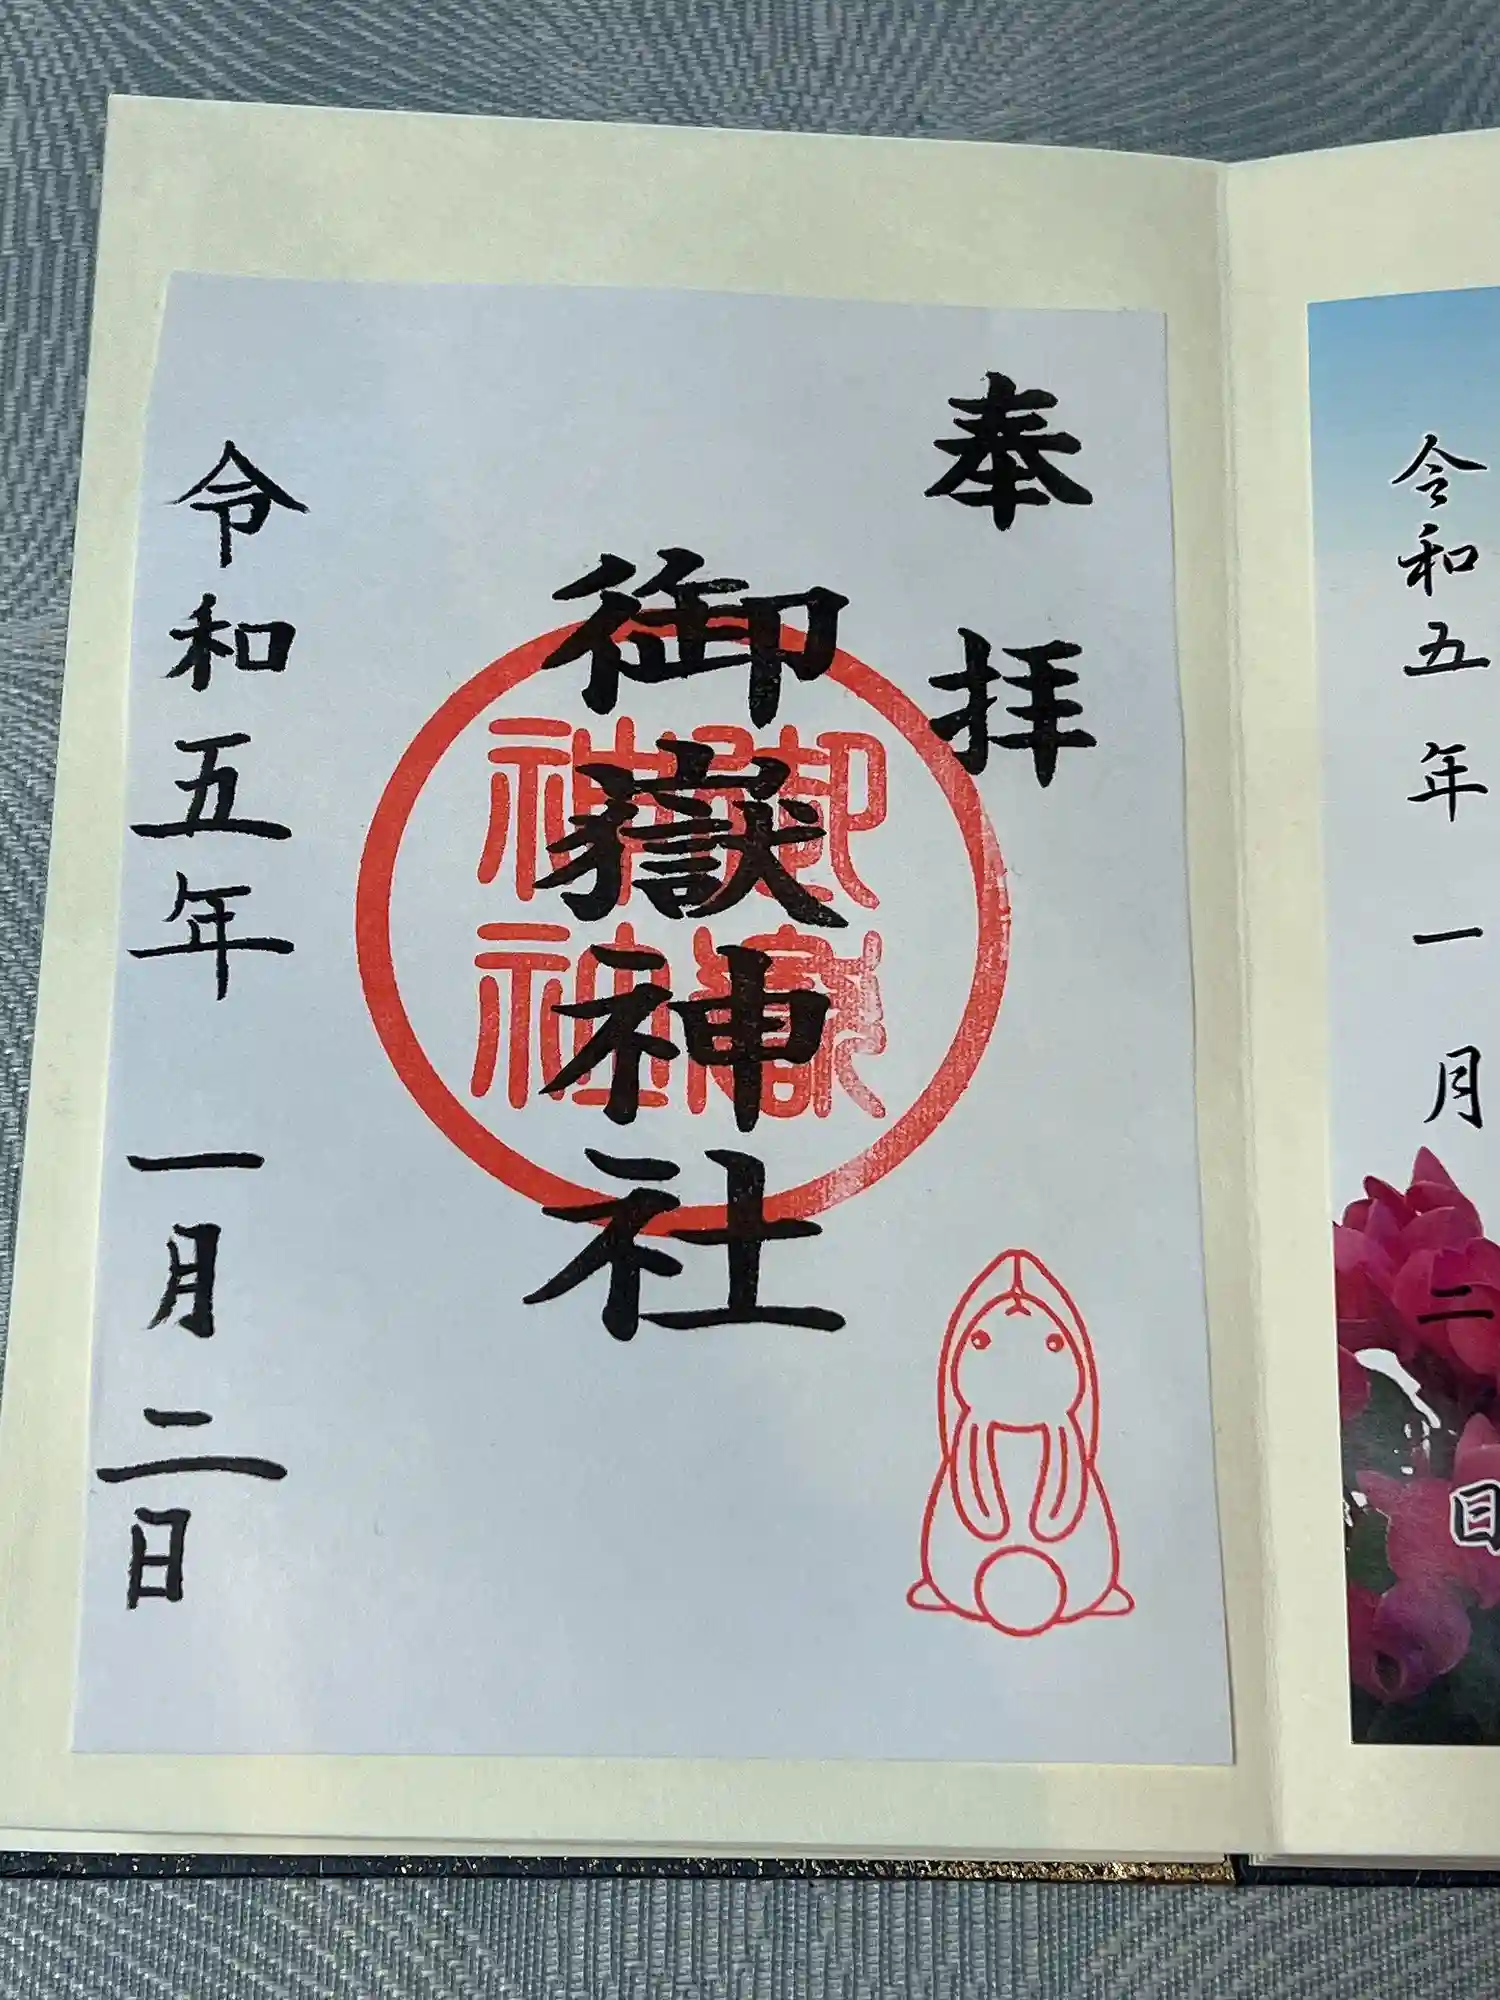 奉拝
御嶽神社
御嶽
神社
令和五年一月二日
令和五年一月二日